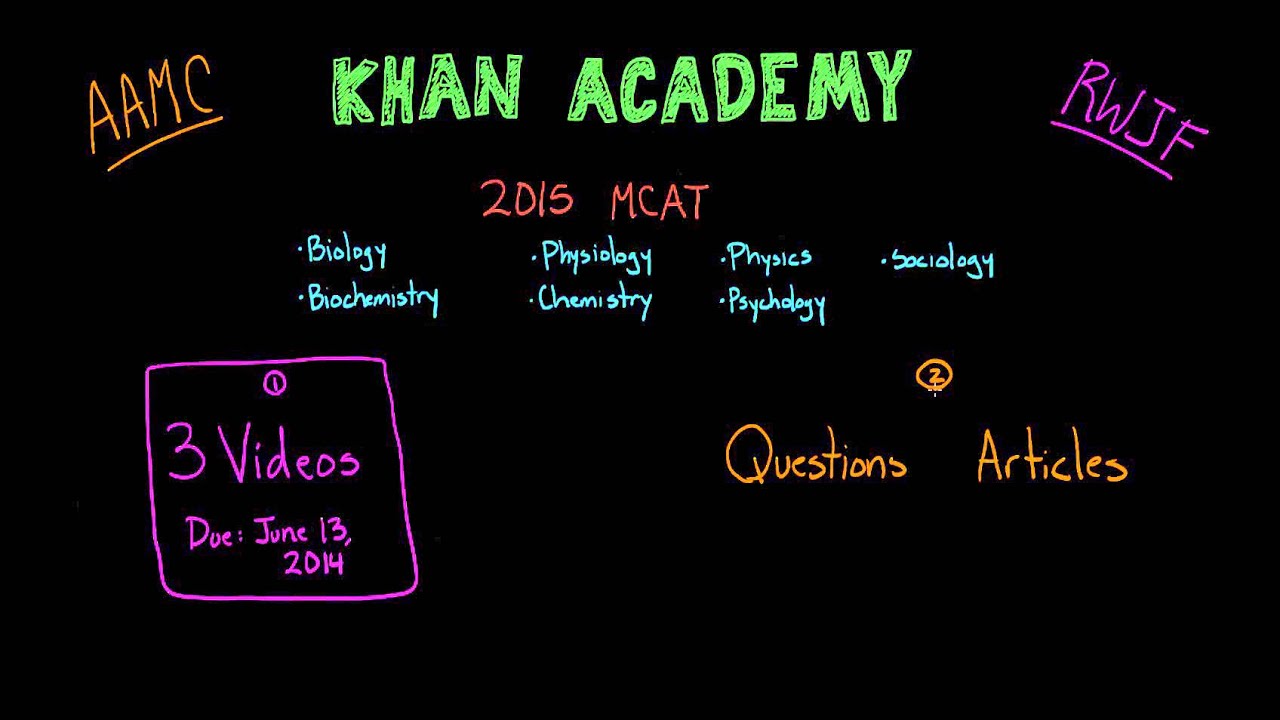 AAMC
KHAN ACADEMY
RWJF
2015 MCAT
·Biology ·Physiology ·Physics ·Sociology
·Biochemistry ·Chemistry ·Psychology
①
3 Videos
Due: June 13,
2014
②
Questions Articles